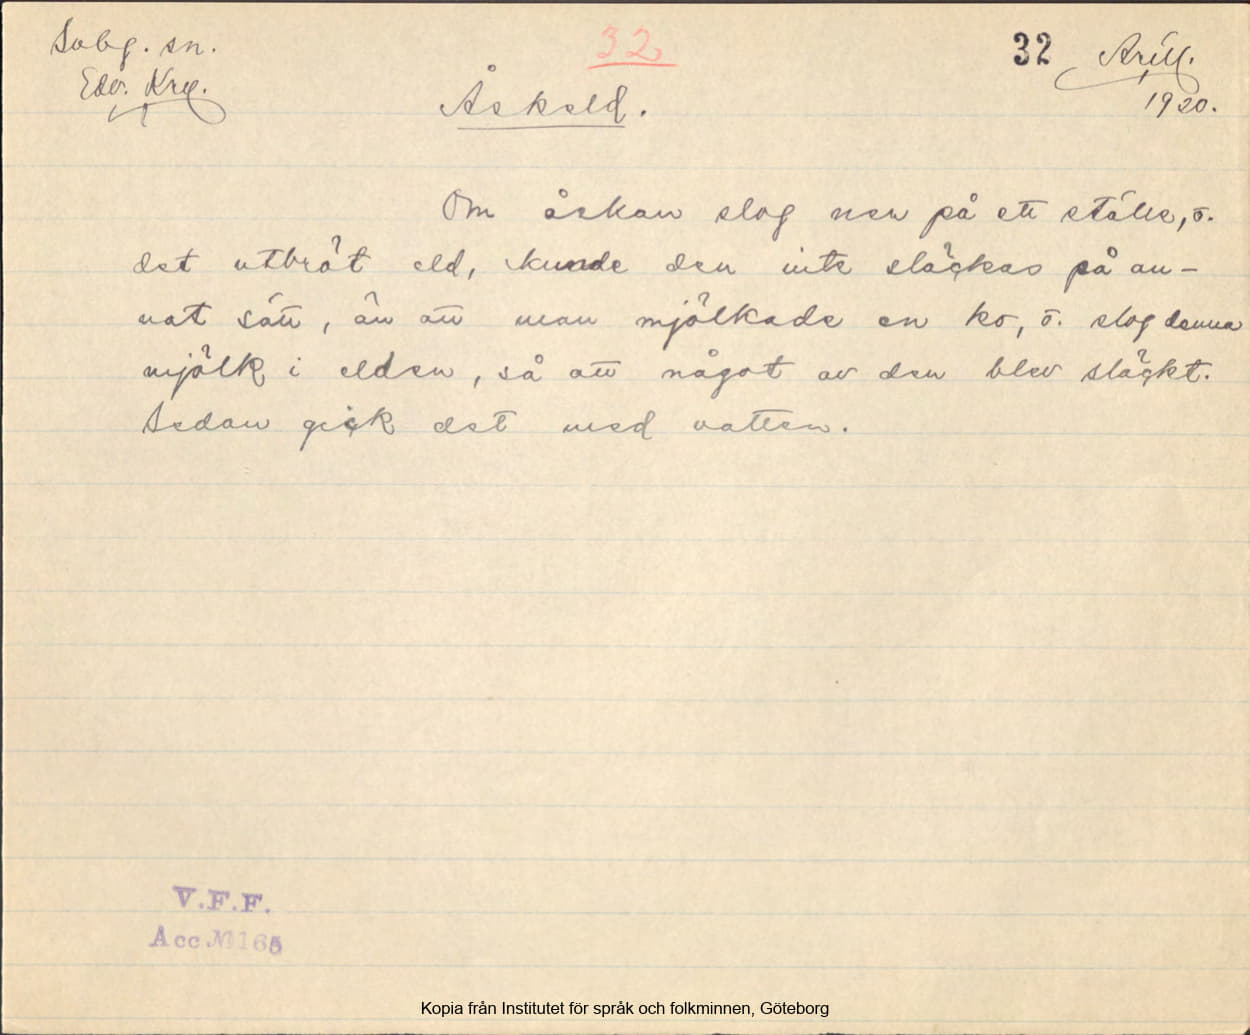 Sobg. sn.
32
32
Edv. Krg.
1920.
Åskeld.
Om åskan slog ner på ett ställe, o.
det utbröt eld, kunde den inte släckas på an-
nat sätt, än att man mjölkade en ko, o. slog denna
mjölk i elden, så att något av den blev släckt.
Sedan gick det med vatten.
V.F.F.
Acc № 165
Kopia från Institutet för språk och folkminnen, Göteborg